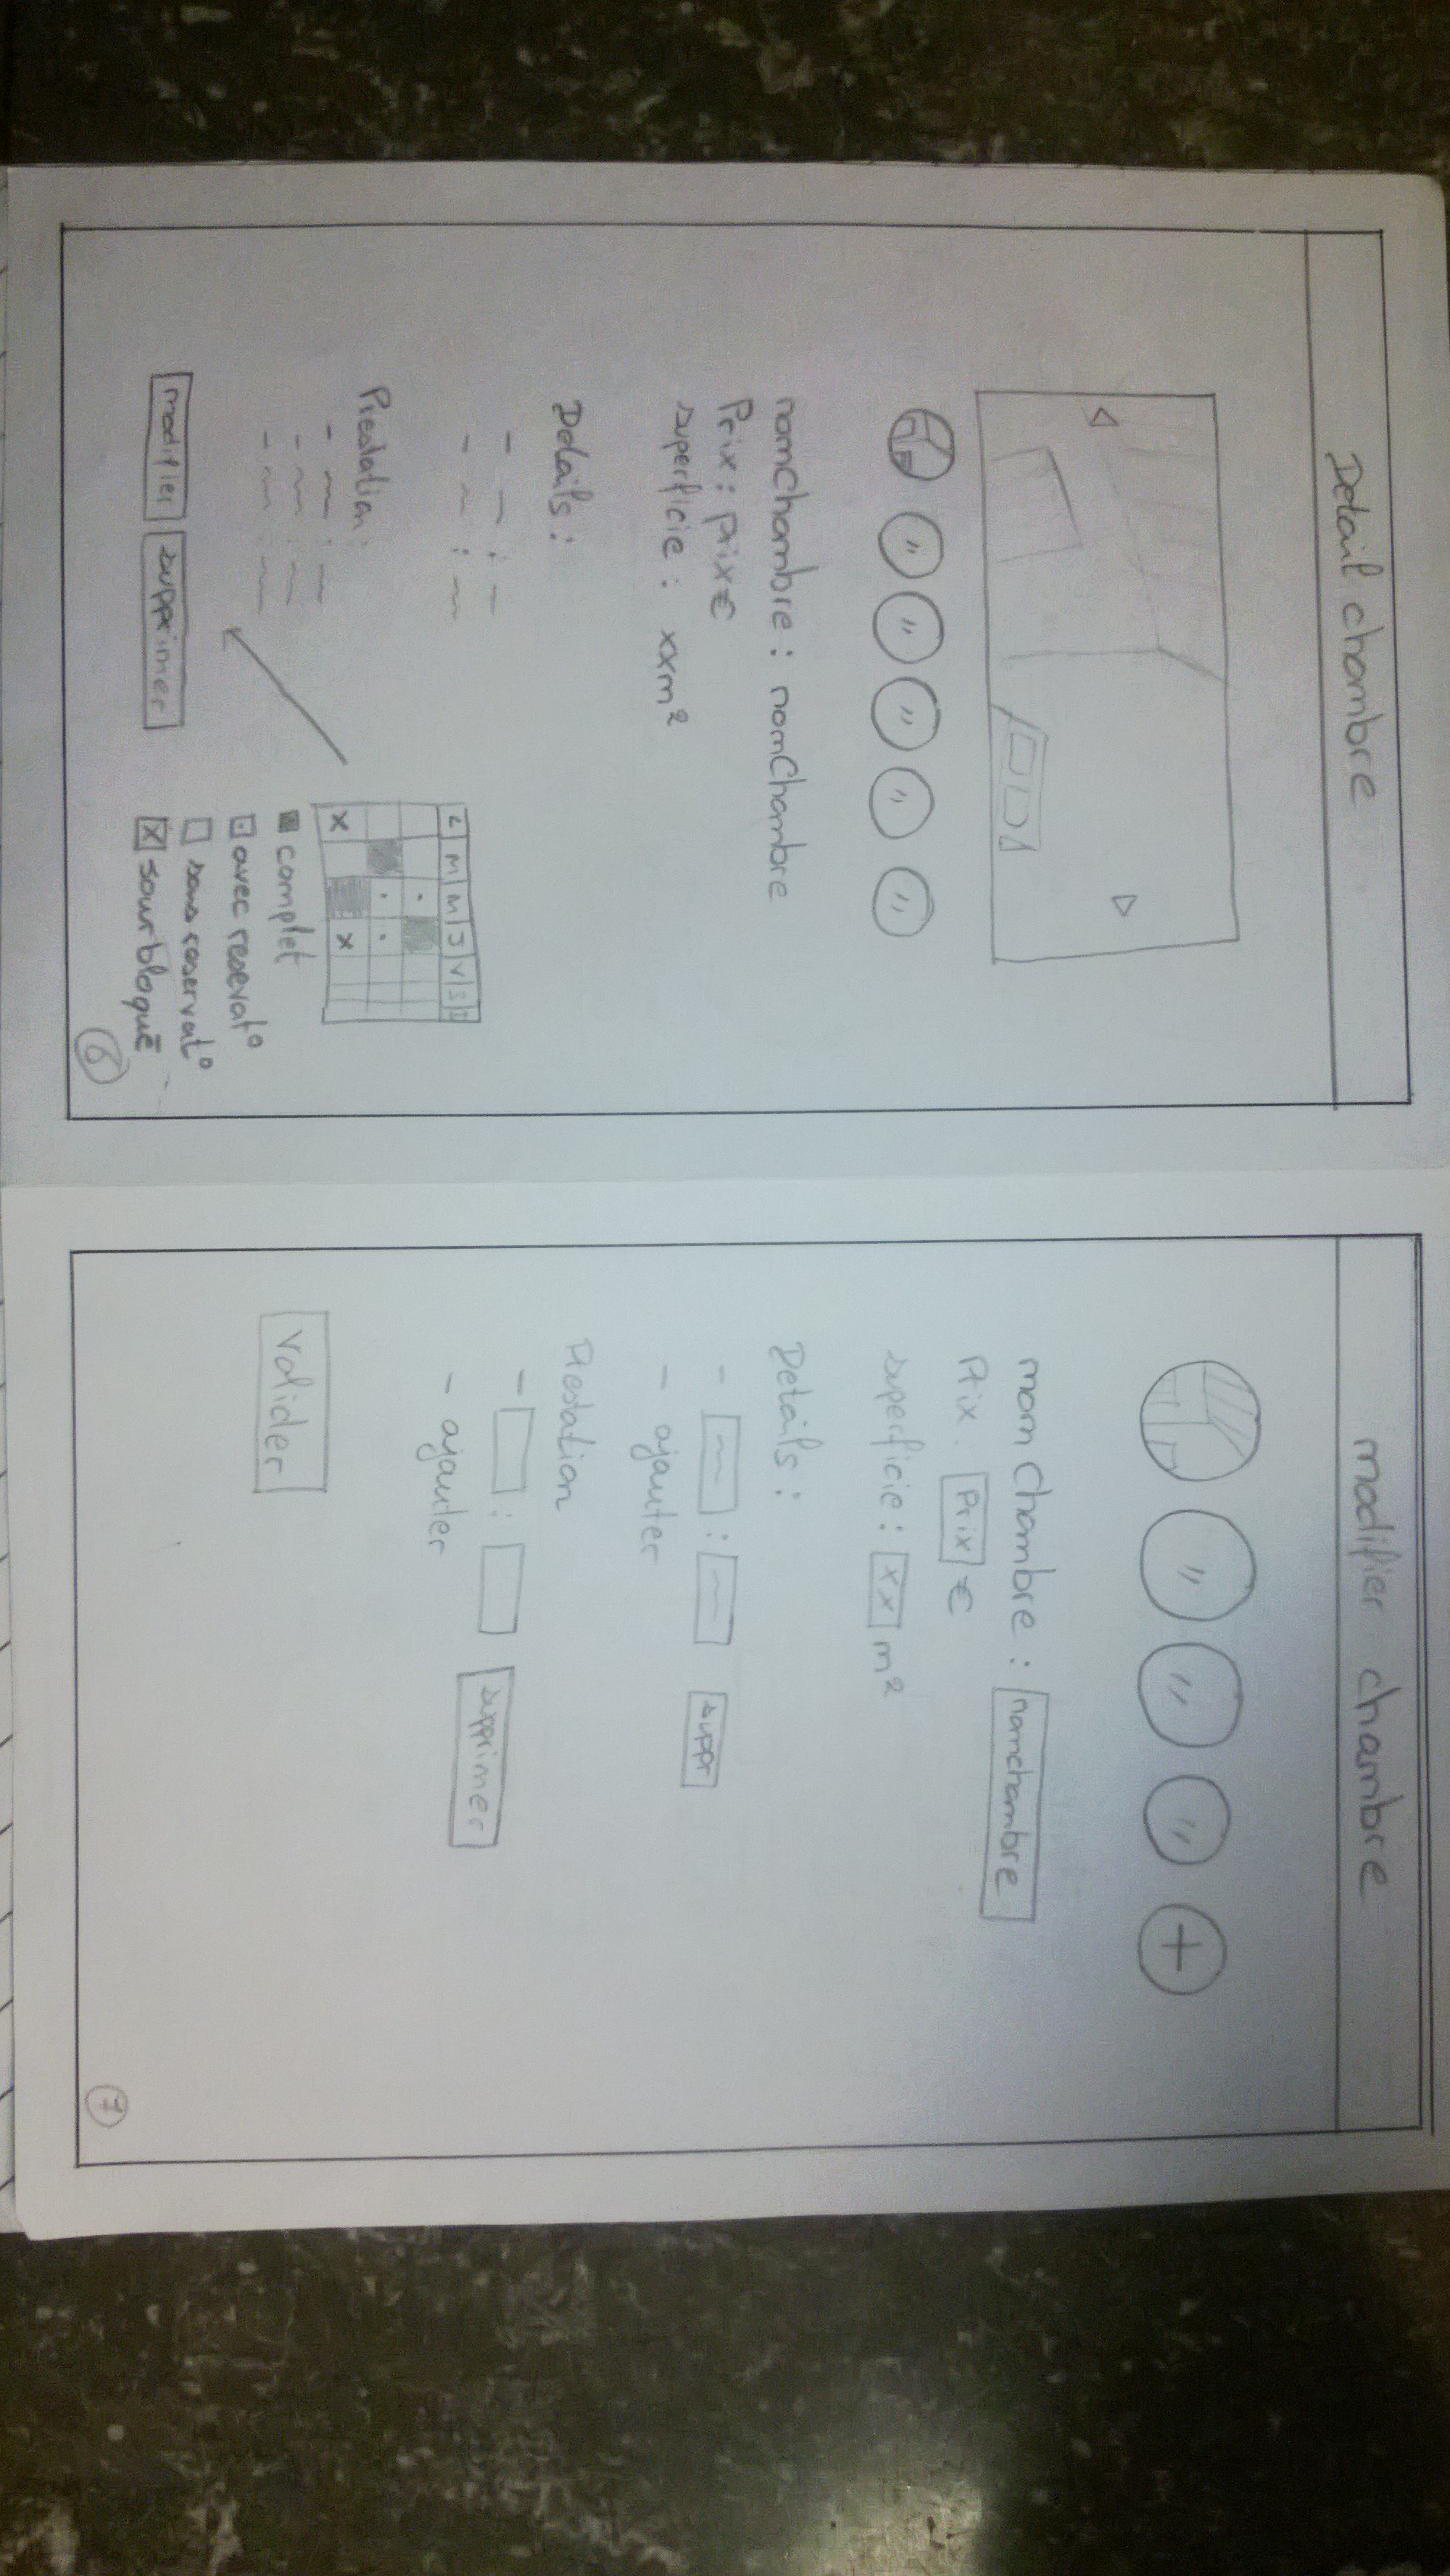 Detail chambre
"
"
"
"
"
nomChambre : nomChambre
Prix : prix €
superficie : xxm²
Details :
- ~ : ~
- ~ : ~
Prestation :
- ~ : ~
- ~ : ~
- ~ : ~
L M M J V S D
.
. .
X X
complet
avec reservat°
sans reservat°
X jour bloqué
modifier supprimer
6
modifier chambre
"
"
"
+
nom Chambre : nomchambre
Prix : Prix €
superficie : xx m²
Details :
- ~ : ~ suppr
- ajouter
Prestation
- : supprimer
- ajouter
Valider
7